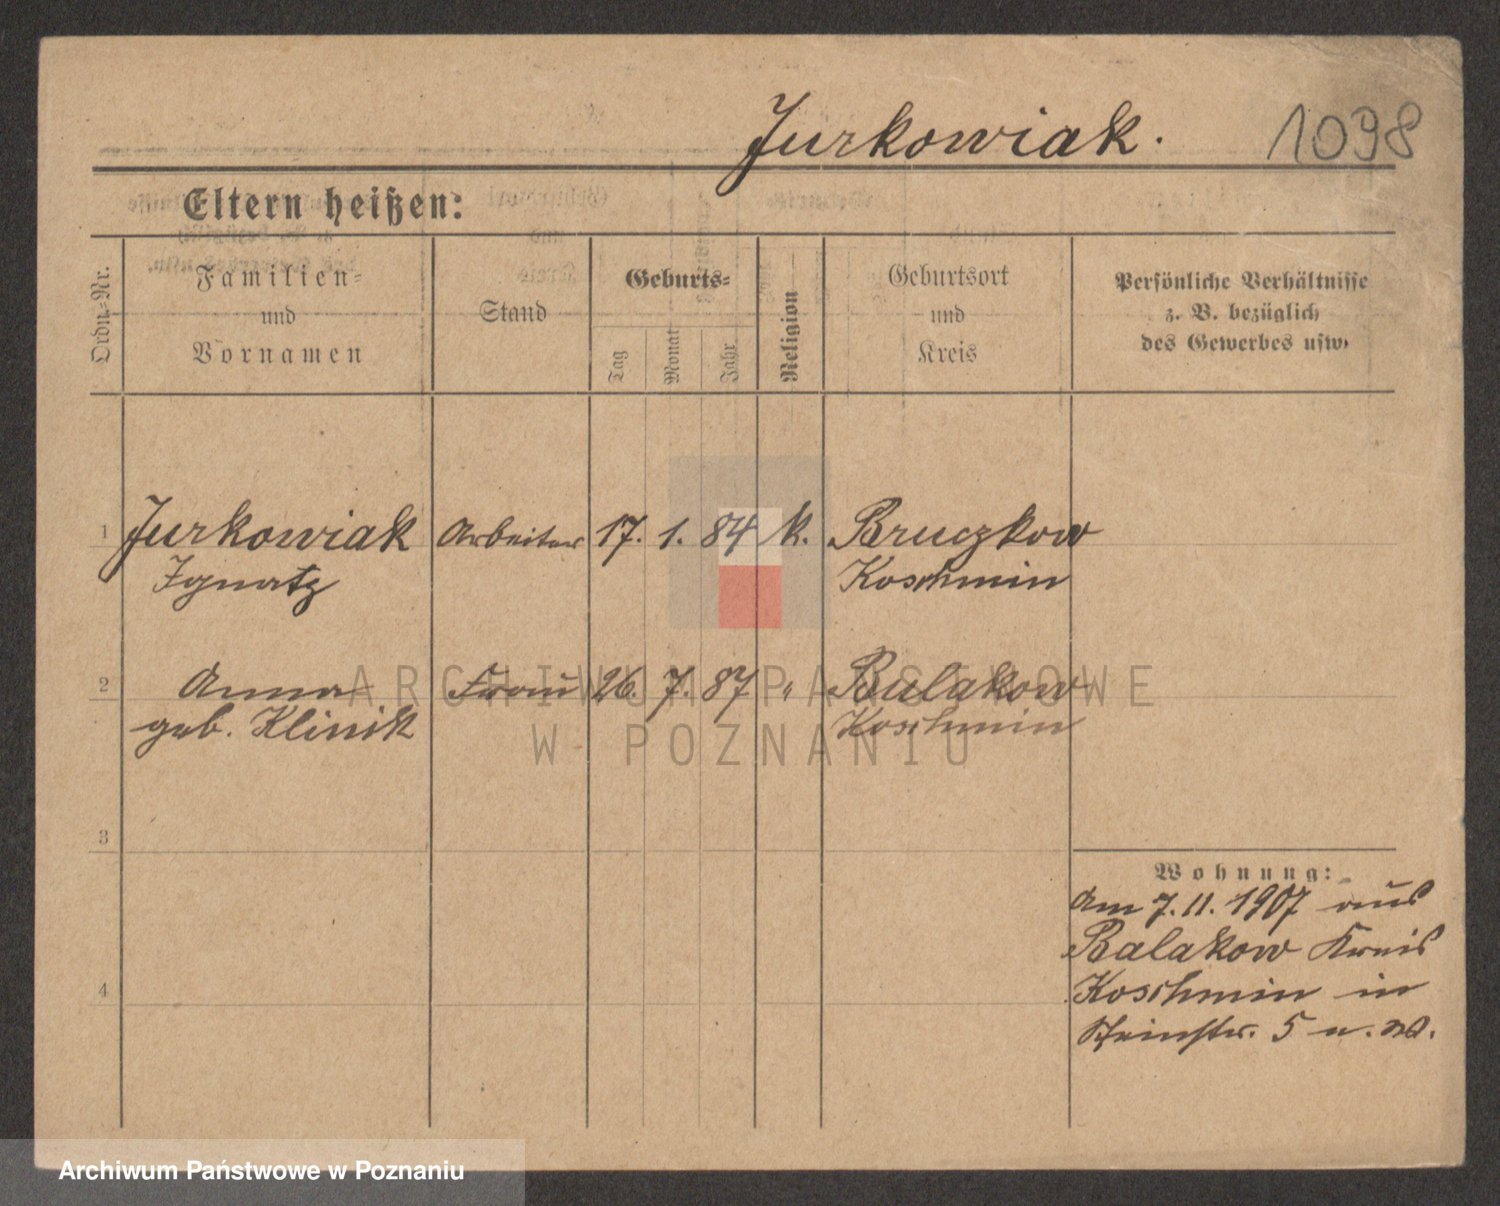 Jurkowiak.
1098
Eltern heißen:
Ordn.-Nr.
Familien-
und
Vornamen
Stand
Geburts-
Tag
Monat
Jahr
Religion
Geburtsort
und
Kreis
Persönliche Verhältnisse
z. B. bezüglich
des Gewerbes usw.
1 Jurkowiak Arbeiter 17. 1. 84 k. Bruczkow
Ignatz Koschmin
2 Anna Frau 26. 7. 87 " Balakow
geb. Klinik Koschmin
3
Wohnung:
Am 7. 11. 1907 aus
Balakow Kreis
4
Koschmin in
5 u. W.
ARCHIWUM PAŃSTWOWE
W POZNANIU
Archiwum Państwowe w Poznaniu